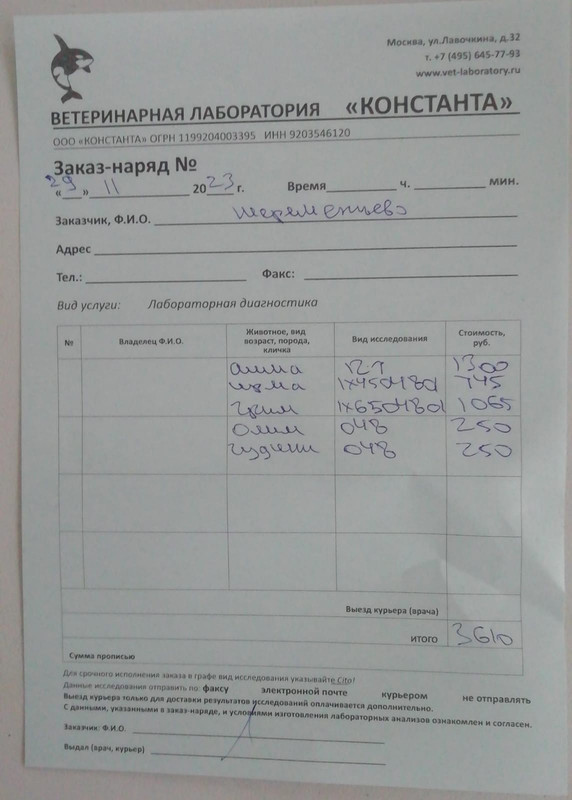 Москва, ул.Лавочкина, д.32
т. +7 (495) 645-77-93
www.vet-laboratory.ru
ВЕТЕРИНАРНАЯ ЛАБОРАТОРИЯ «КОНСТАНТА»
ООО «КОНСТАНТА» ОГРН 1199204003395 ИНН 9203546120
Заказ-наряд №
«29» 11 2023 г. Время ч. мин.
Заказчик, Ф.И.О. Шереметьево
Адрес
Тел.: Факс:
Вид услуги: Лабораторная диагностика
№ Владелец Ф.И.О. Животное, вид возраст, порода, кличка Вид исследования Стоимость, руб.
1300
745
Грим 1065
Олим 048 250
048 250
Выезд курьера (врача)
ИТОГО 3610
Сумма прописью
Для срочного исполнения заказа в графе вид исследования указывайте Cito!
Данные исследования отправить по: факсу электронной почте курьером не отправлять
Выезд курьера только для доставки результатов исследований оплачивается дополнительно.
С данными, указанными в заказ-наряде, и условиями изготовления лабораторных анализов ознакомлен и согласен.
Заказчик: Ф.И.О.
Выдал (врач, курьер)